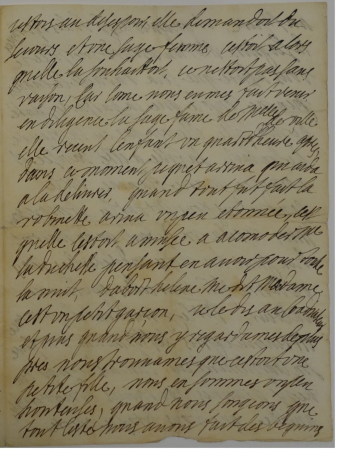 estois au desespoir elle demandoit du
secours et une sage femme cestoit alors
quelle la souhaittoit, ce nestoit pas sans
raison, car come nous eumes fait venir
en diligence la sage fame de
elle receut lenfant un quart dheure apres
dans ce moment pequet ariva qui aida
a la delivrer, quand tout fut fait la
robinette ariva un peu etonnée, cest
quelle sestoit amusée a acomoder
la duchesse pensant en avoir pour toute
la nuit, dabord helene me dit Madame
cest un petit garcon, je le dis au coadjuteur
et puis quand nous y regardames de plus
pres nous trouvames que cestoit une
petite fille, nous en sommes un peu
honteuses, quand nous songeons que
tout lesté nous avons fait des beguins